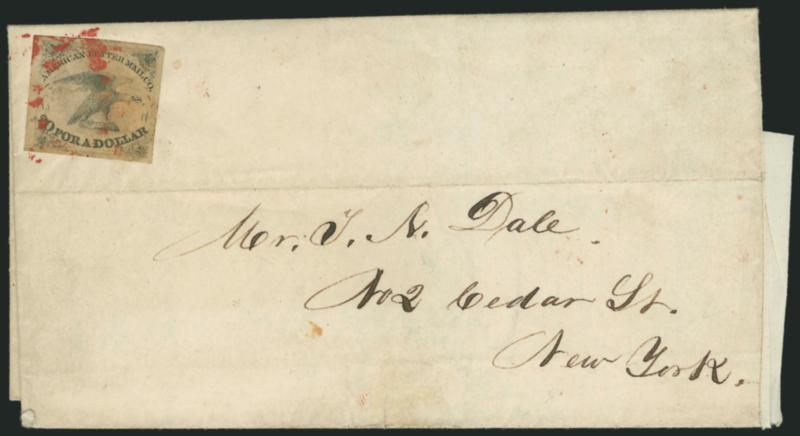 AMERICAN LETTER MAIL CO.
20 FOR A DOLLAR
Mr. T. N. Dale.
No 2 Cedar St.
New York.